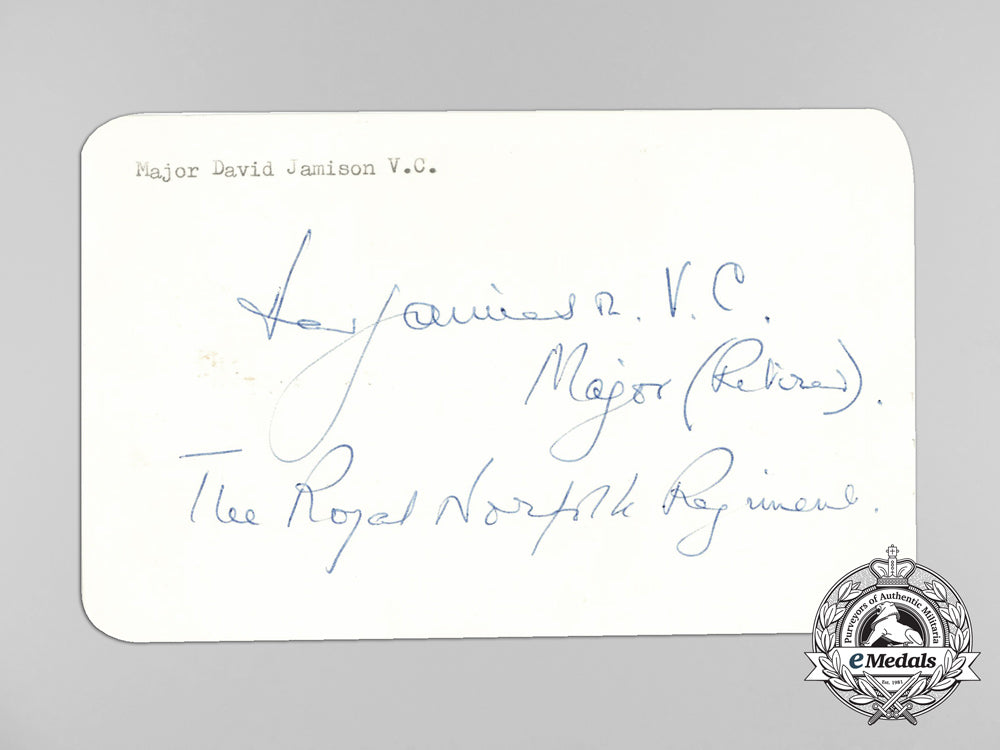 Major David Jamison V.C.
Jamieson. V. C.
Major (Retired).
The Royal Norfolk Regiment.
Purveyors of Authentic Militaria
eMedals
Est. 1981